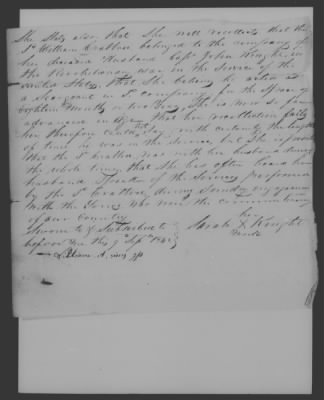 She States also, that She well recollects that the
Sd William Bratton belonged to the company of
her deceased Husband Capt John Knight in
the Revolutionary war in the service of the
united States, that She believes he acted as
a Sergeant in Sd company for the space of
eighteen months or two years. She is now so far
advanced in age that her recollection fails
her therefore cannot say with certainty the length
of time he was in the Service, but She
that the Sd Bratton was with her husband during
the whole time, that She has often heard her
husband speak of the Services performed
by the Sd Bratton during Sundry engagements
with the Tories who were the common enemy
of our Country
Sworn to & Subscribed
before me this 9 Sept 1842
Sarah X Knight
her
mark